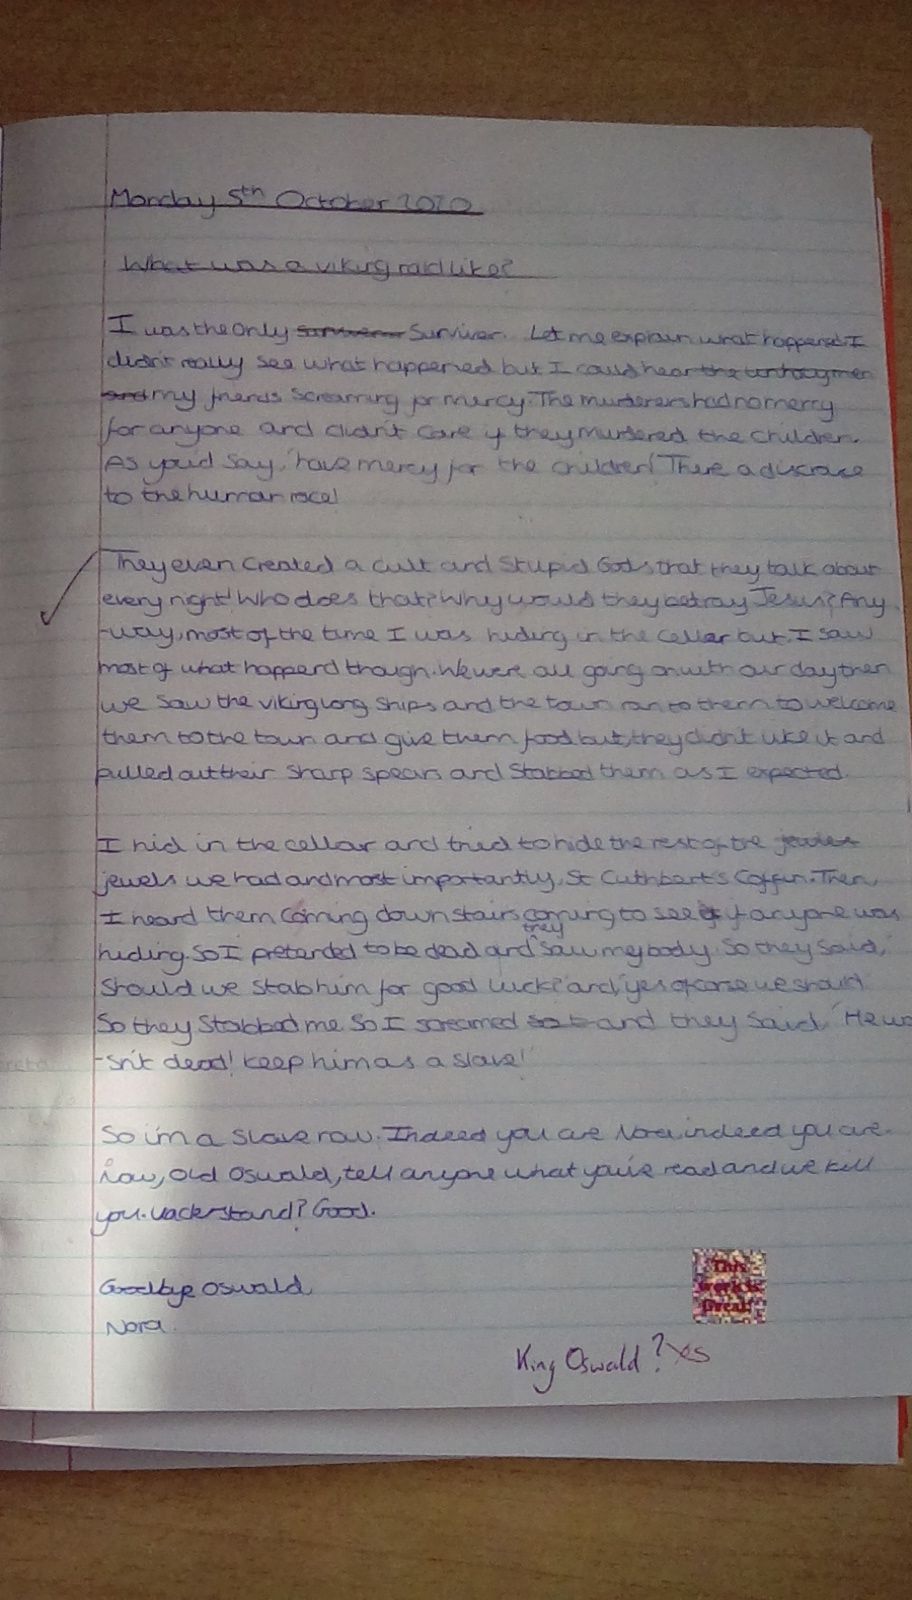 Monday 5th October 2020
What was a viking raid like?
I was the only Surviver. Let me explain what happened. I
didn't really see what happened but I could hear the unholy men
and my friends Screaming for mercy. The murderers had no mercy
for anyone and didn't care if they murdered the children.
As you'd say, 'have mercy for the children!' There a discrace
to the human race!
They even created a cult and Stupid Gods that they talk about
every night! Who does that? Why would they betray Jesus? Any
-way, most of the time I was hiding in the cellar but, I saw
most of what happend though. We were all going on with our day then
we saw the viking long ships and the town ran to them to welcome
them to the town and give them food but, they didn't like it and
pulled out their sharp spears and Stabbed them as I expected.
I hid in the cellar and tried to hide the rest of the
jewels we had and most importantly, St Cuthbert's Coffin. Then,
I heard them coming down stairs coming to see if anyone was
hiding. So I pretended to be dead and they saw my body. So they said,
'Should we stab him for good luck?' and, 'yes of corse we should'.
So they Stabbed me So I screamed and they said, 'He wa
-sn't dead! keep him as a slave!'
So i'm a slave now. Indeed you are Nora, indeed you are.
Now, Old Oswald, tell anyone what you've read and we kill
you. Understand? Good.
Goodbye Oswald,
Nora.
This
work is
Great!
King Oswald? Yes